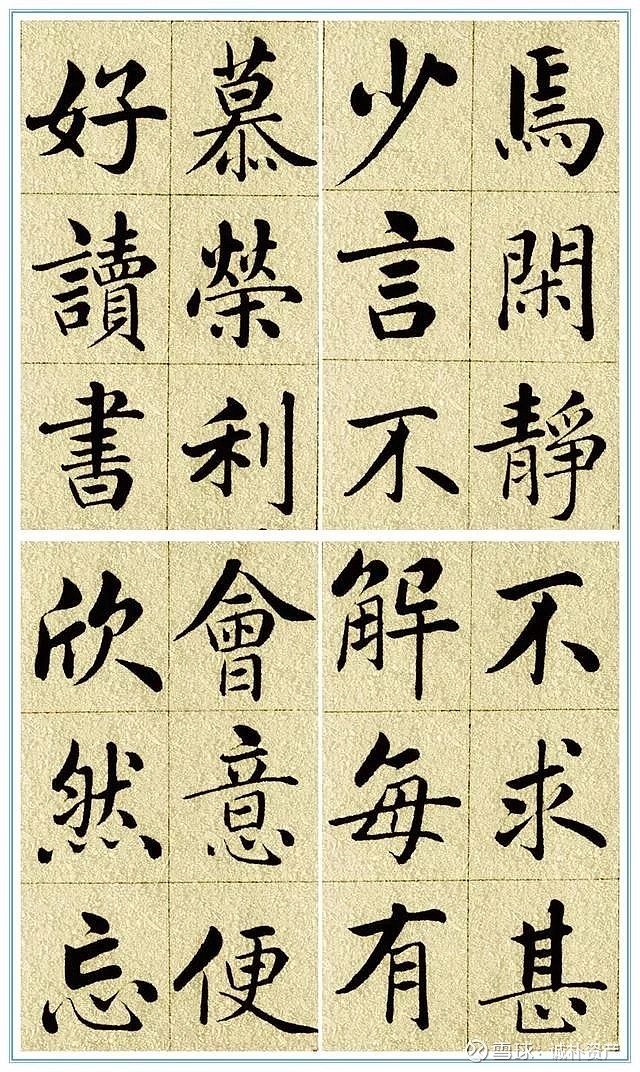 焉閑靜
少言不
慕榮利
好讀書
不求甚
解每有
會意便
欣然忘
雪球：诚朴资产